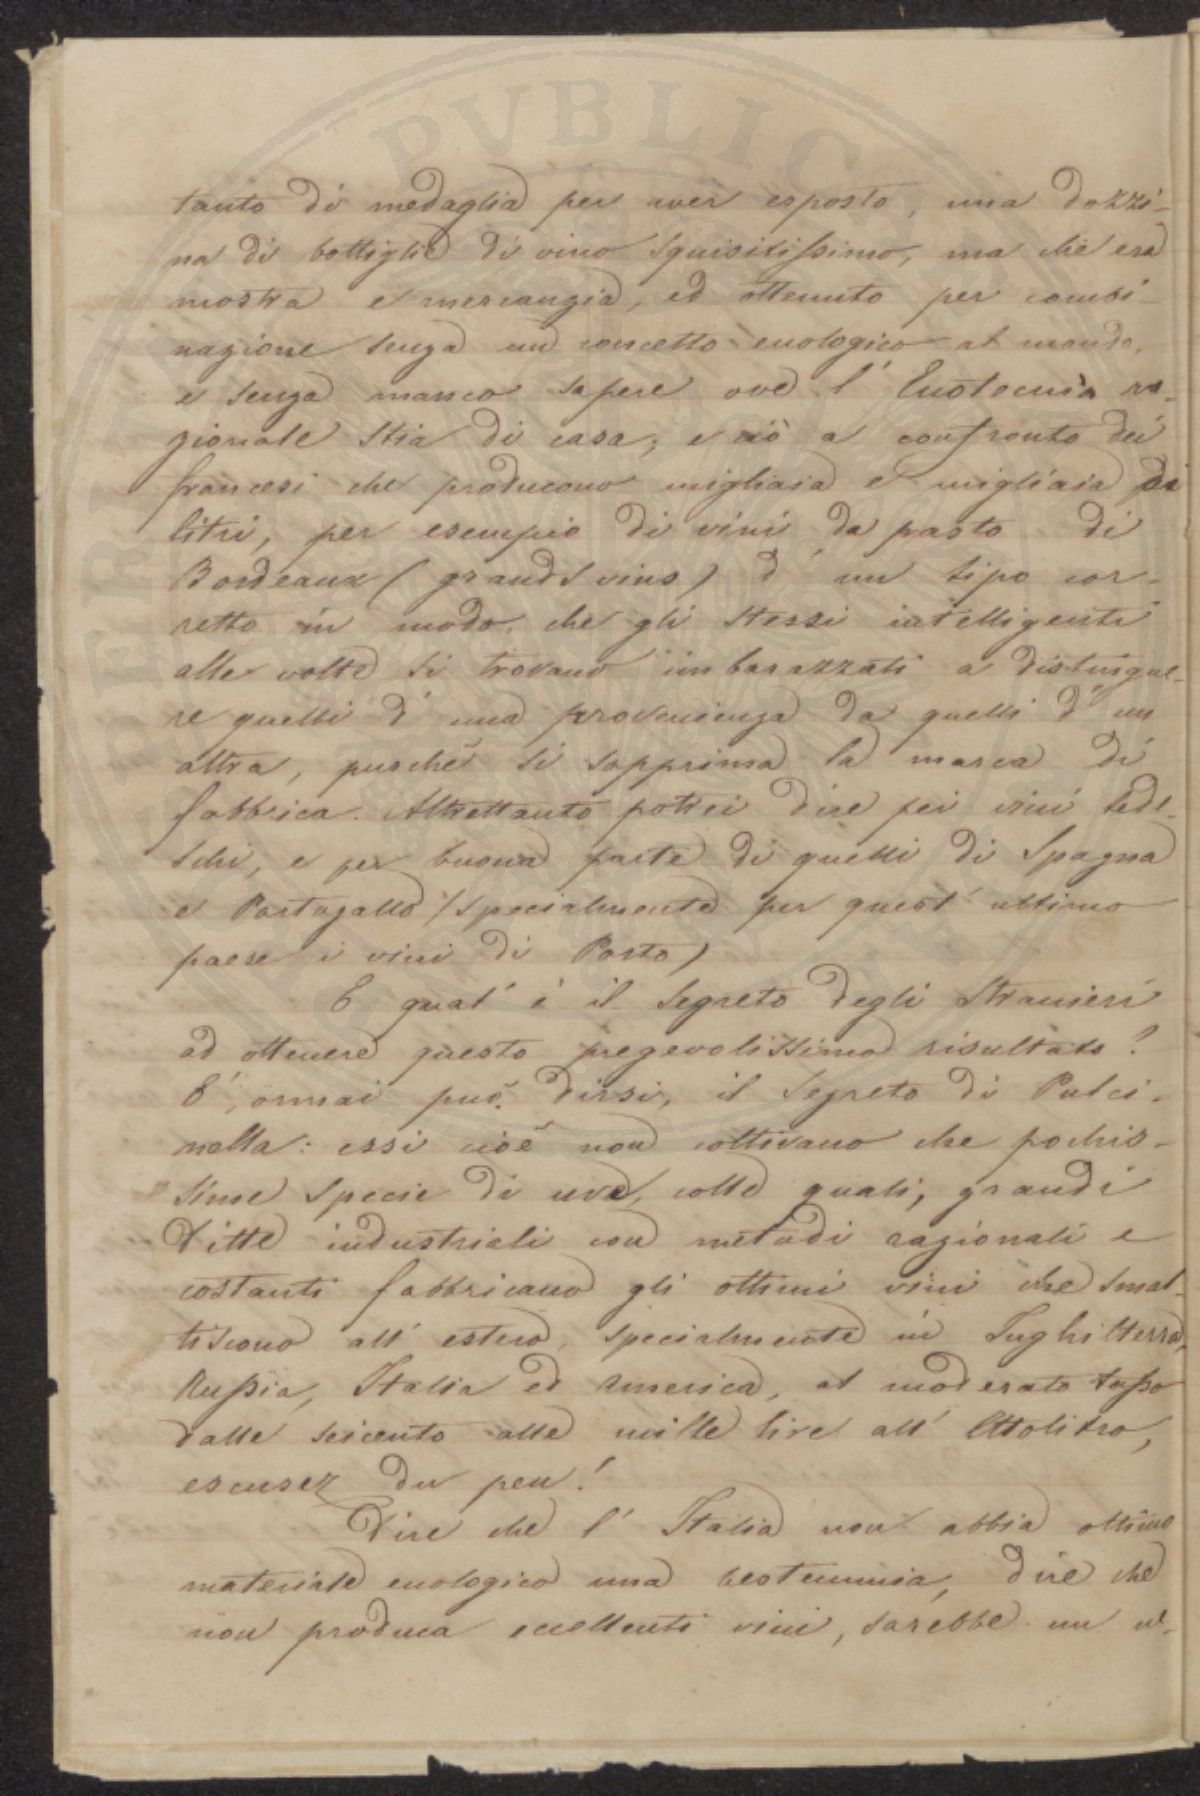 tanto di medaglia per aver esposto, una dozzi-
na di bottiglie di vino squisitissimo, ma che era
mostra e mercanzia, ed ottenuto per combi-
nazione senza un concetto enologico al mondo,
e senza manco sapere ove l' Enotecnia ra-
zionale stia di casa; e ciò a confronto dei
francesi che producono migliaia e migliaia di
litri, per esempio di vini da pasto di
Bordeaux (grands vins) d' un tipo cor-
retto in modo, che gli stessi intelligenti
alle volte si trovano imbarazzati a distingue-
re quelli d' una provenienza da quelli d' un
altra, purchè si sopprima la marca di
fabbrica. Altrettanto potrei dire pei vini tede-
schi, e per buona parte di quelli di Spagna
e Portogallo (specialmente per quest' ultimo
paese i vini di Porto)
E qual' è il segreto degli stranieri
ad ottenere questo pregevolissimo risultato?
E', ormai può dirsi, il segreto di Pulci-
nella: essi cioè non coltivano che pochis-
sime specie di uve, colle quali, grandi
Ditte industriali con metodi razionali e
costanti fabbricano gli ottimi vini che smal-
tiscono all' estero, specialmente in Inghilterra,
Russia, Italia ed America, al moderato tasso
dalle seicento alle mille lire all' Ettolitro,
escusez du peu!
Dire che l' Italia non abbia ottimo
materiale enologico una bestemmia, dire che
non produca eccellenti vini, sarebbe un